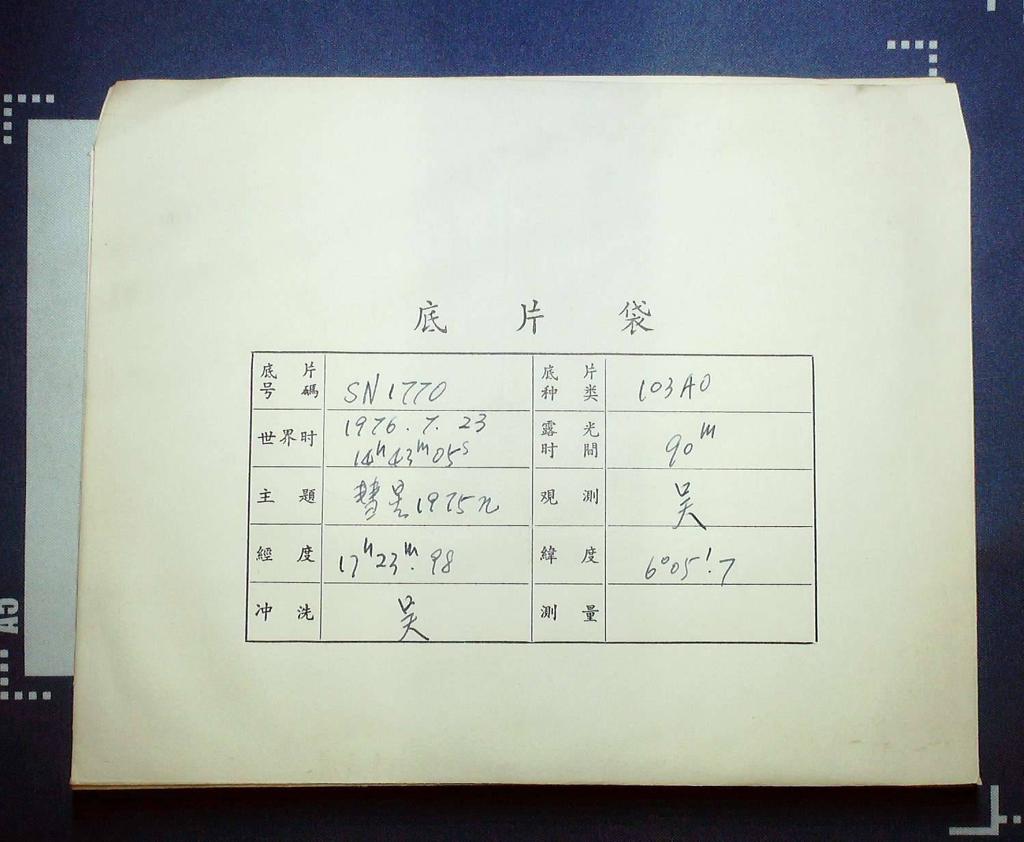 底 片 袋
底 片
号 碼
SN1770
底 片
种 类
103AO
世界时
1976.7.23
14ʰ43ᵐ05ˢ
露 光
时 間
90ᵐ
主 題
彗星1975n
观 測
吴
經 度
17ʰ23ᵐ.98
緯 度
6°05'.7
冲 洗
吴
測 量
A5